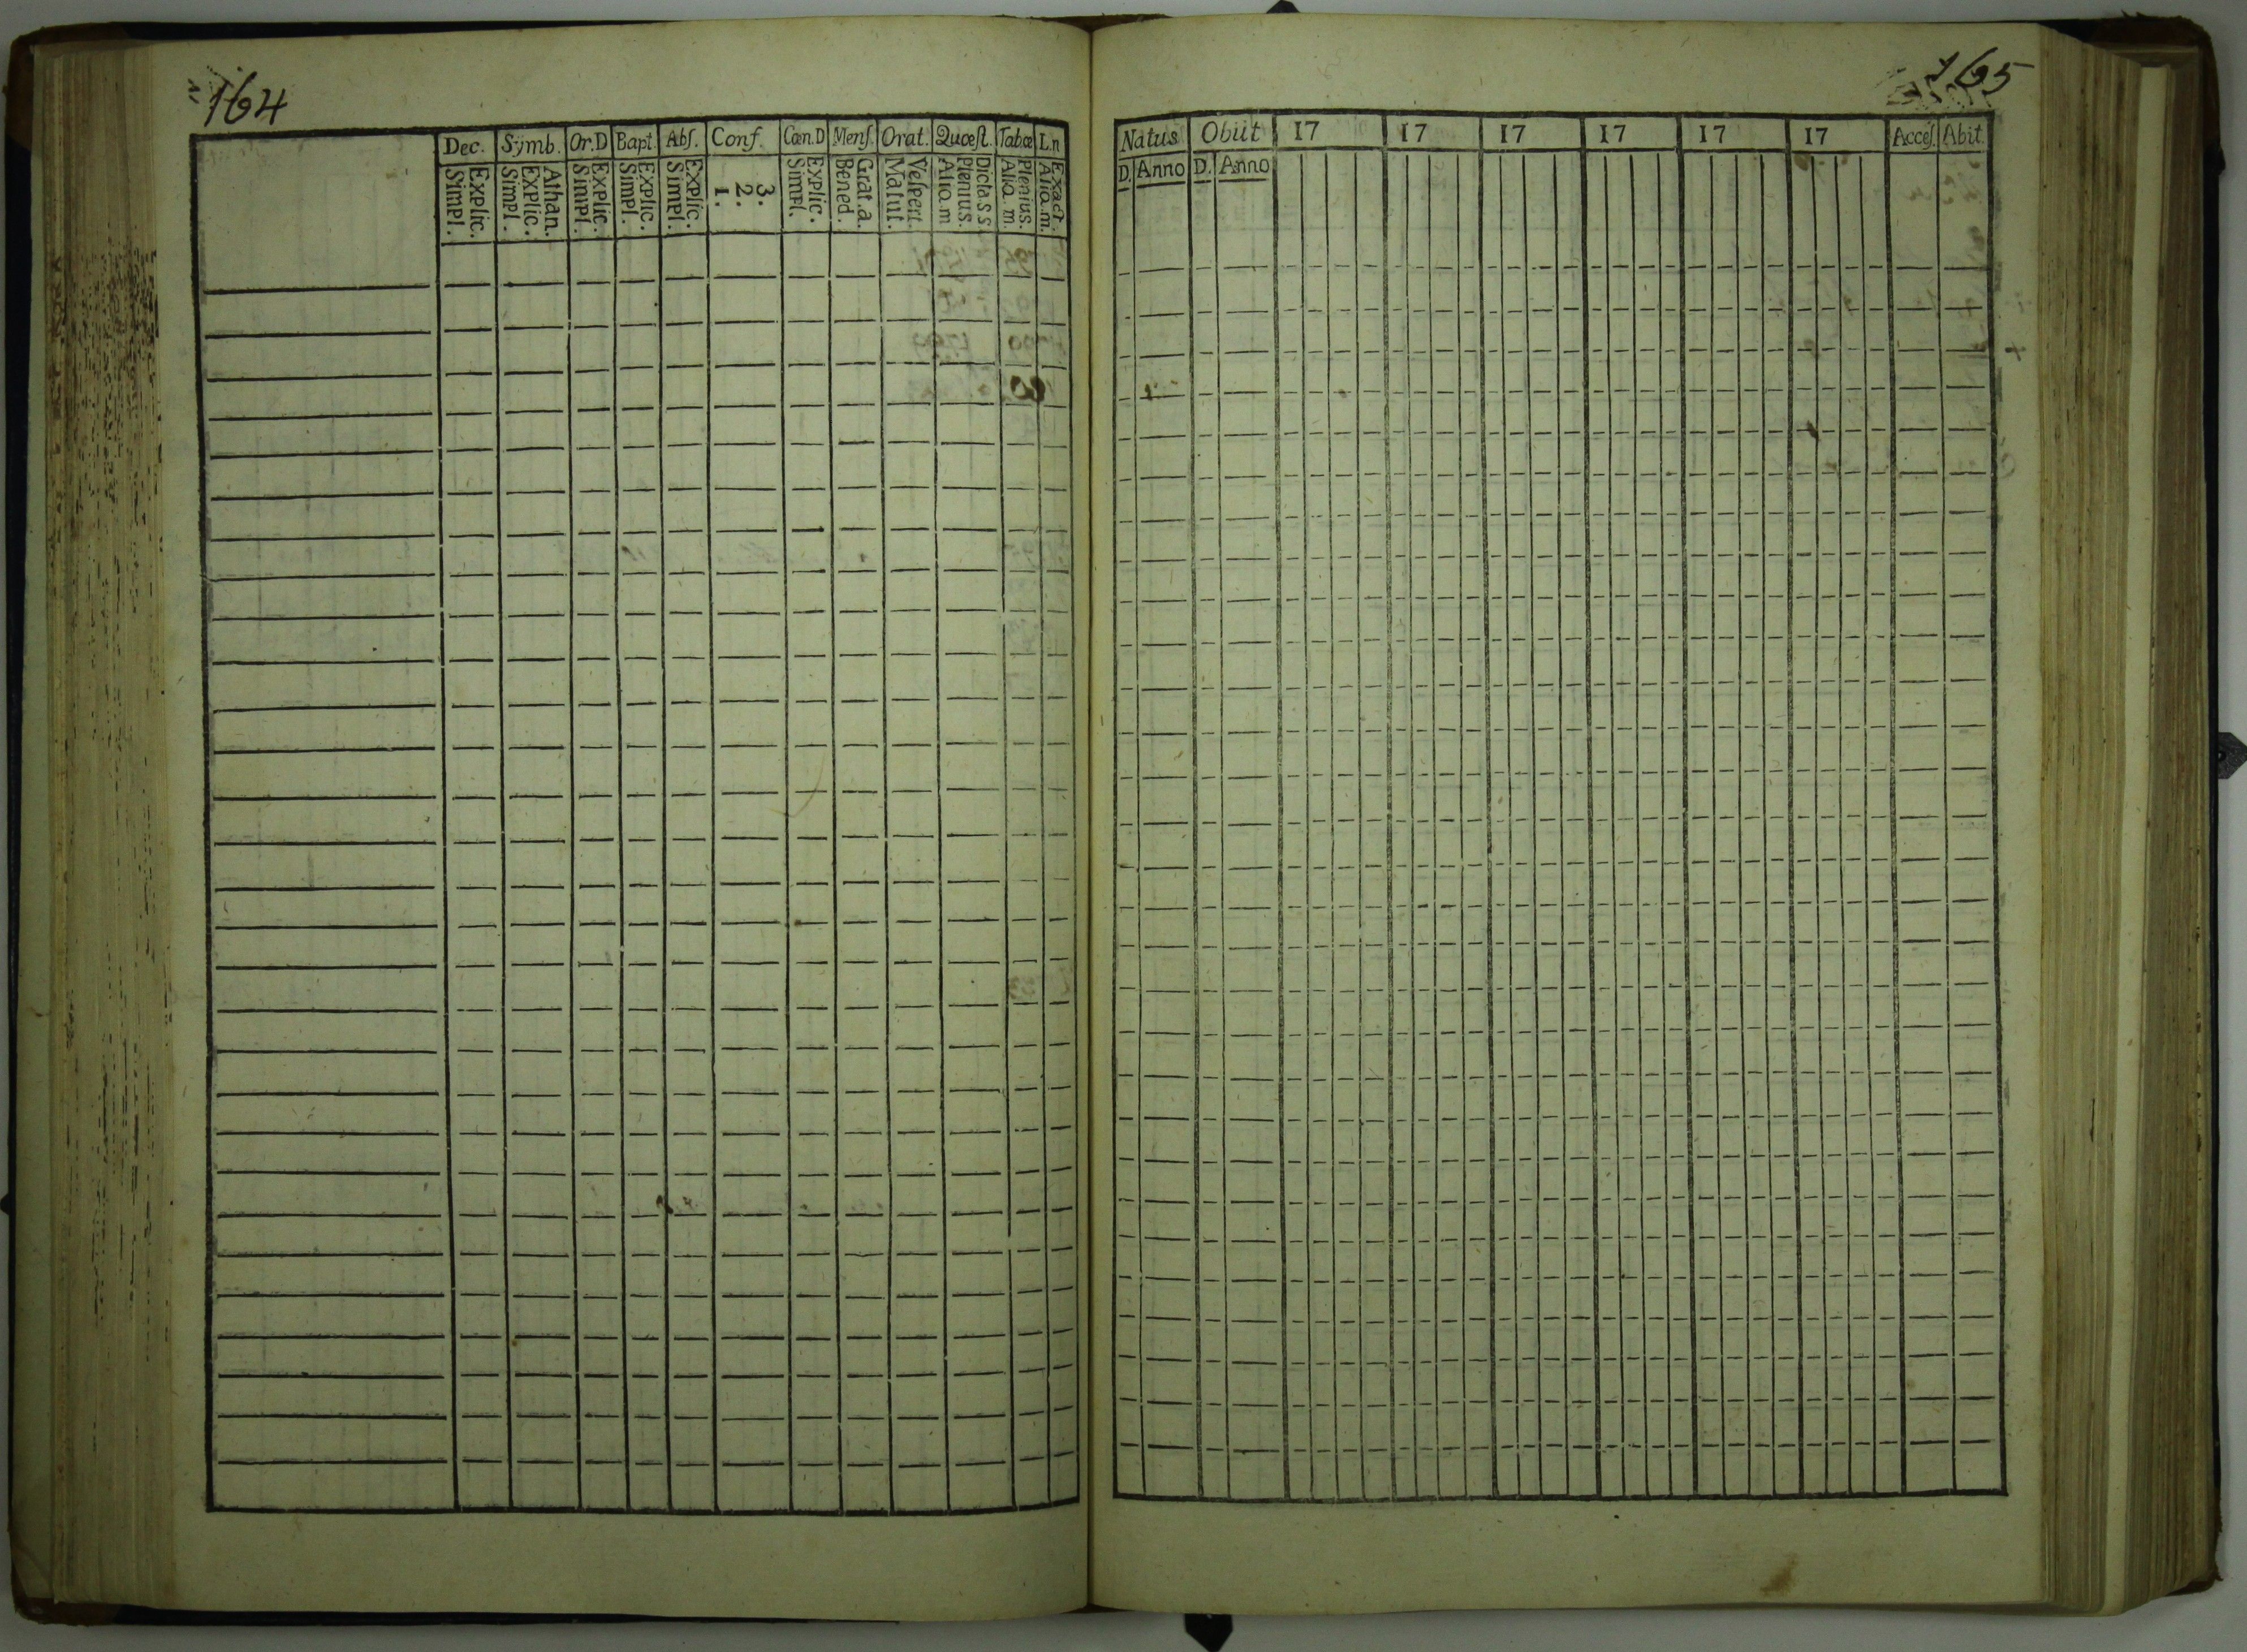 164
Dec. Symb. Or.D Bapt. Abſ. Conf. Cœn.D Menſ. Orat. Quœſt. Tabœ L.n
Explic. Simpl. Athan. Explic. Simpl. Explic. Simpl. Explic. Simpl. Explic. Simpl. 3. 2. 1. Explic. Simpl. Grat.a. Bened. Veſpert. Matut. Dicta.S S. Plenius. Alia.m Plenius. Alia.m. Exact. Alia.m.
165
Natus Obiit 17 17 17 17 17 17 Acceſ. Abit.
D. Anno D. Anno